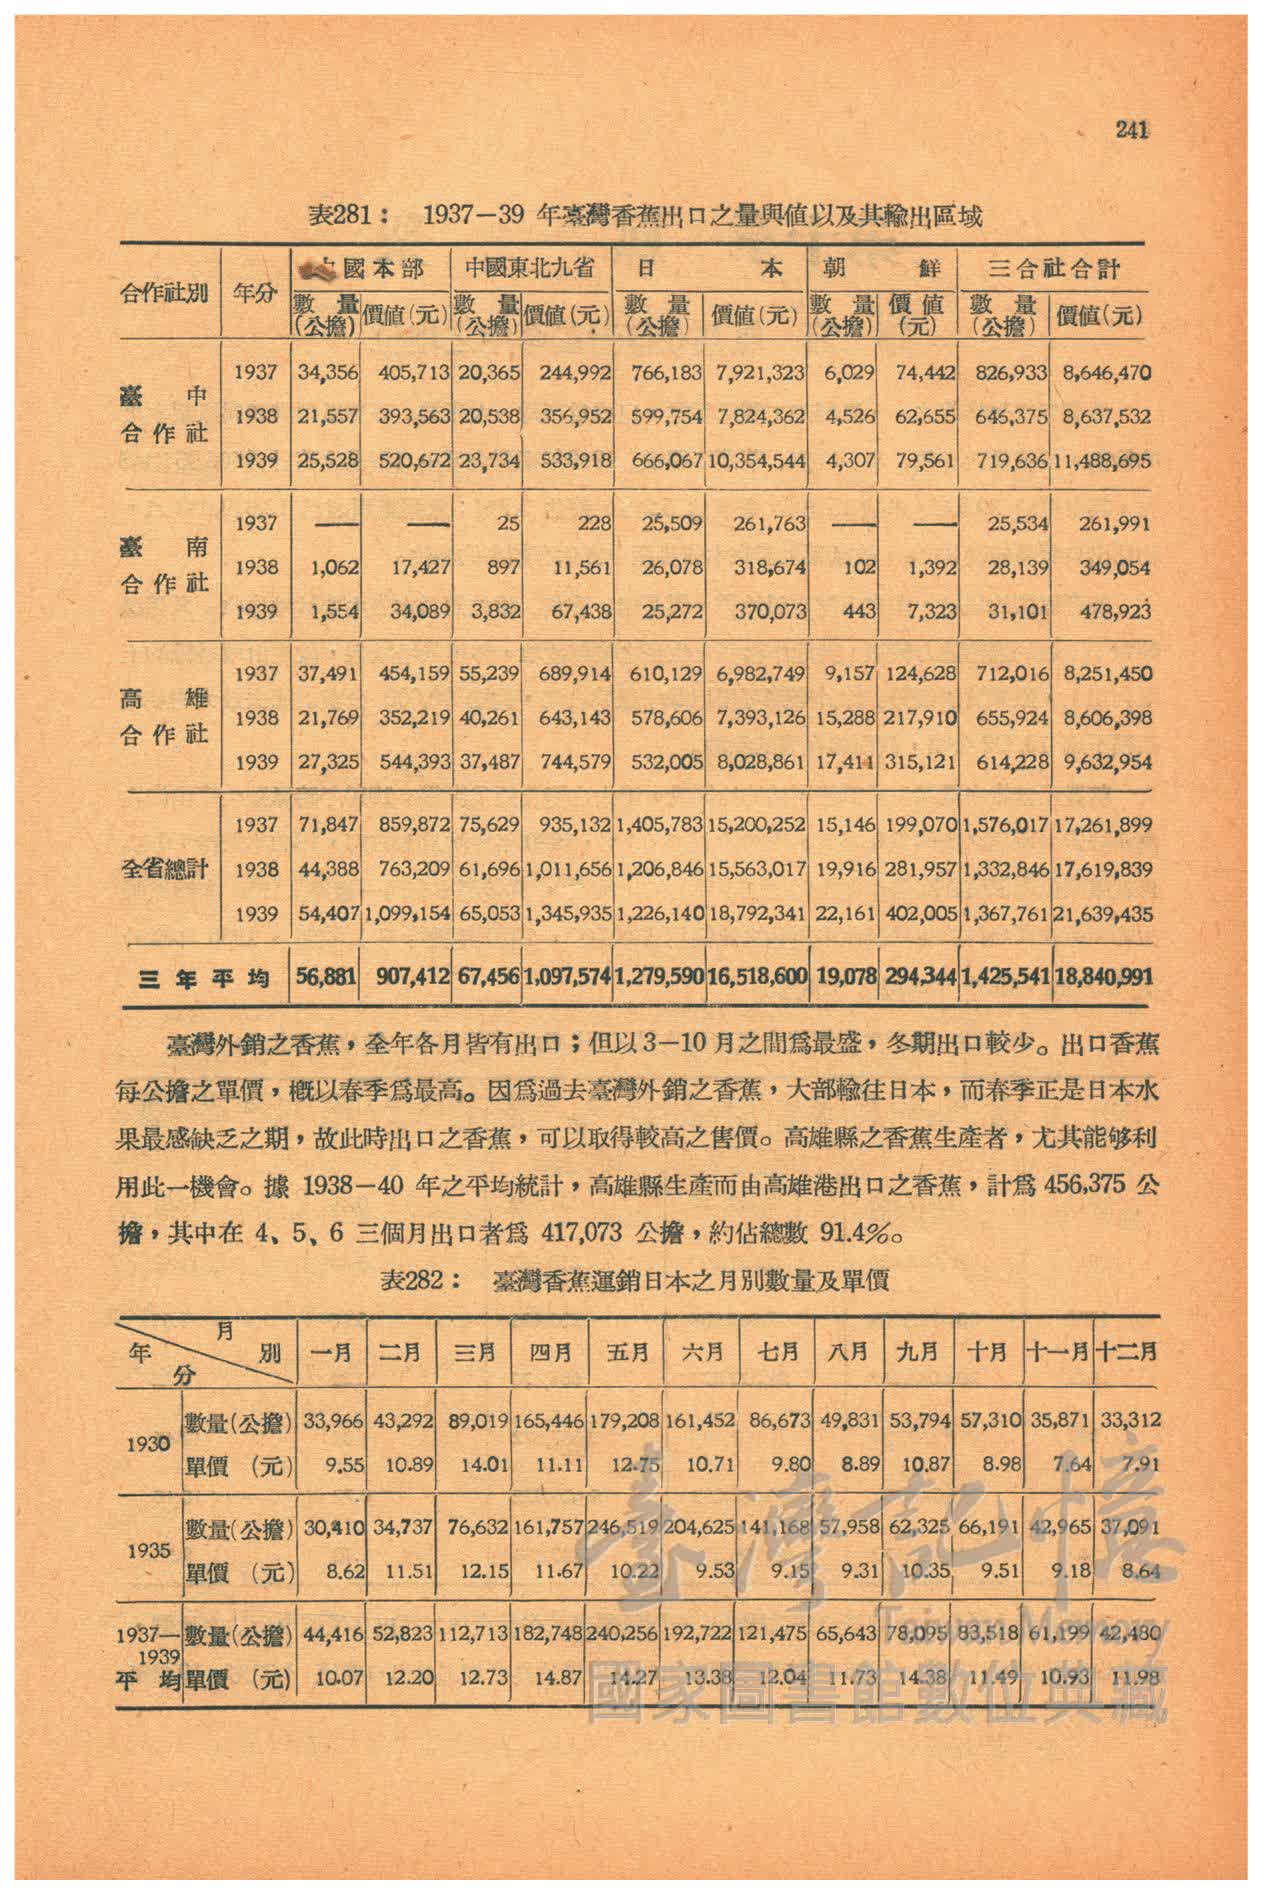 241
表281： 1937－39 年臺灣香蕉出口之量與値以及其輸出區域
合作社別 年分 國本部 中國東北九省 日本 朝鮮 三合社合計
數量(公擔) 價値(元) 數量(公擔) 價値(元) 數量(公擔) 價値(元) 數量(公擔) 價値(元) 數量(公擔) 價値(元)
臺中合作社
1937 34,356 405,713 20,365 244,992 766,183 7,921,323 6,029 74,442 826,933 8,646,470
1938 21,557 393,563 20,538 356,952 599,754 7,824,362 4,526 62,655 646,375 8,637,532
1939 25,528 520,672 23,734 533,918 666,067 10,354,544 4,307 79,561 719,636 11,488,695
臺南合作社
1937 — — 25 228 25,509 261,763 — — 25,534 261,991
1938 1,062 17,427 897 11,561 26,078 318,674 102 1,392 28,139 349,054
1939 1,554 34,089 3,832 67,438 25,272 370,073 443 7,323 31,101 478,923
高雄合作社
1937 37,491 454,159 55,239 689,914 610,129 6,982,749 9,157 124,628 712,016 8,251,450
1938 21,769 352,219 40,261 643,143 578,606 7,393,126 15,288 217,910 655,924 8,606,398
1939 27,325 544,393 37,487 744,579 532,005 8,028,861 17,411 315,121 614,228 9,632,954
全省總計
1937 71,847 859,872 75,629 935,132 1,405,783 15,200,252 15,146 199,070 1,576,017 17,261,899
1938 44,388 763,209 61,696 1,011,656 1,206,846 15,563,017 19,916 281,957 1,332,846 17,619,839
1939 54,407 1,099,154 65,053 1,345,935 1,226,140 18,792,341 22,161 402,005 1,367,761 21,639,435
三年平均 56,881 907,412 67,456 1,097,574 1,279,590 16,518,600 19,078 294,344 1,425,541 18,840,991
臺灣外銷之香蕉，全年各月皆有出口；但以3－10月之間爲最盛，冬期出口較少。出口香蕉
每公擔之單價，概以春季爲最高。因爲過去臺灣外銷之香蕉，大部輸往日本，而春季正是日本水
果最感缺乏之期，故此時出口之香蕉，可以取得較高之售價。高雄縣之香蕉生產者，尤其能够利
用此一機會。據 1938－40 年之平均統計，高雄縣生產而由高雄港出口之香蕉，計爲 456,375 公
擔，其中在 4、5、6 三個月出口者爲 417,073 公擔，約佔總數 91.4%。
表282： 臺灣香蕉運銷日本之月別數量及單價
年分 月別 一月 二月 三月 四月 五月 六月 七月 八月 九月 十月 十一月 十二月
1930 數量(公擔) 33,966 43,292 89,019 165,446 179,208 161,452 86,673 49,831 53,794 57,310 35,871 33,312
單價 (元) 9.55 10.89 14.01 11.11 12.75 10.71 9.80 8.89 10.87 8.98 7.64 7.91
1935 數量(公擔) 30,410 34,737 76,632 161,757 246,519 204,625 141,168 57,958 62,325 66,191 42,965 37,091
單價 (元) 8.62 11.51 12.15 11.67 10.22 9.53 9.15 9.31 10.35 9.51 9.18 8.64
1937—1939平均 數量(公擔) 44,416 52,823 112,713 182,748 240,256 192,722 121,475 65,643 78,095 83,518 61,199 42,480
單價 (元) 10.07 12.20 12.73 14.87 14.27 13.38 12.04 11.73 14.38 11.49 10.93 11.98
臺灣記憶
Taiwan Memory
國家圖書館數位典藏